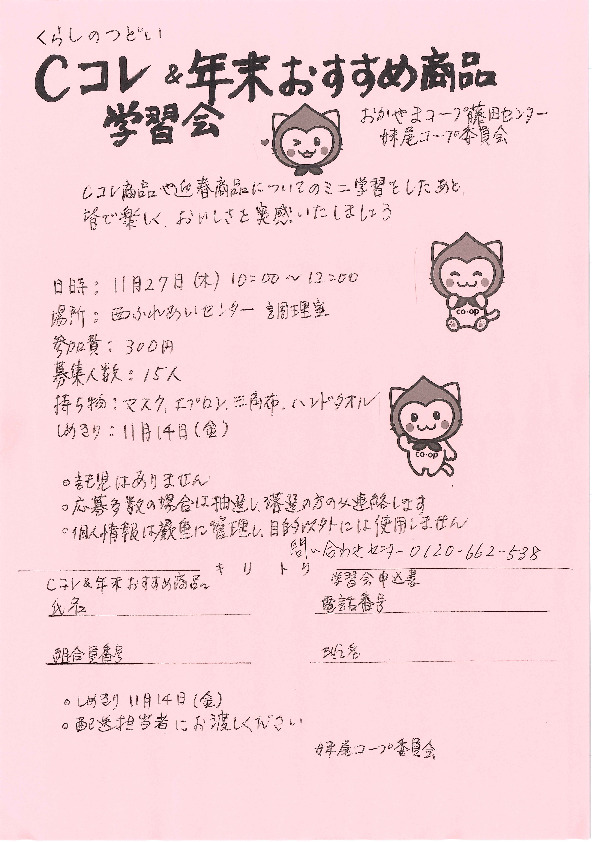 くらしのつどい
Cコレ&年末おすすめ商品
学習会
おかやまコープ藤田センター
妹尾コープ委員会
Cコレ商品や迎春商品についてのミニ学習をしたあと、
皆で楽しく、おいしさを実感いたしましょう
日時：11月27日(木) 10:00～13:00
場所：西ふれあいセンター 調理室
参加費：300円
募集人数：15人
持ち物：マスク、エプロン、三角布、ハンドタオル
しめきり：11月14日(金)
co·op
co·op
○託児はありません
○応募多数の場合は抽選し、落選の方のみ連絡します
○個人情報は厳重に管理し、目的以外には使用しません
問い合わせセンター 0120-662-538
キリトリ
Cコレ&年末おすすめ商品 学習会申込書
氏名 電話番号
組合員番号
○しめきり 11月14日(金)
○配送担当者にお渡しください
妹尾コープ委員会